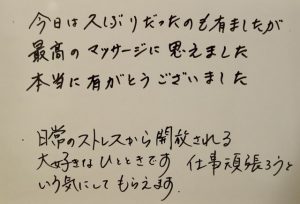 今日は久しぶりだったのも有ましたが
最高のマッサージに思えました
本当に有がとうございました
・日常のストレスから開放される
大好きなひとときです 仕事頑張ろうと
いう気にしてもらえます.